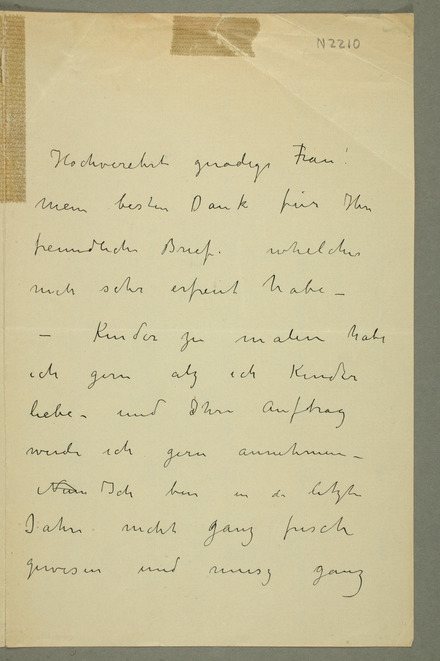 N2210
Hochverehrte gnädige Frau!
mein besten Dank für Ihr
freundliche Brief. whelche
mich sehr erfreut habe –
– Kinder zu malen habe
ich gern alz ich Kinder
liebe – und Ihre Auftrag
werde ich gern annehmen –
Ich ben in de letzte
Jahre nicht ganz frisch
gewesen und musz ganz